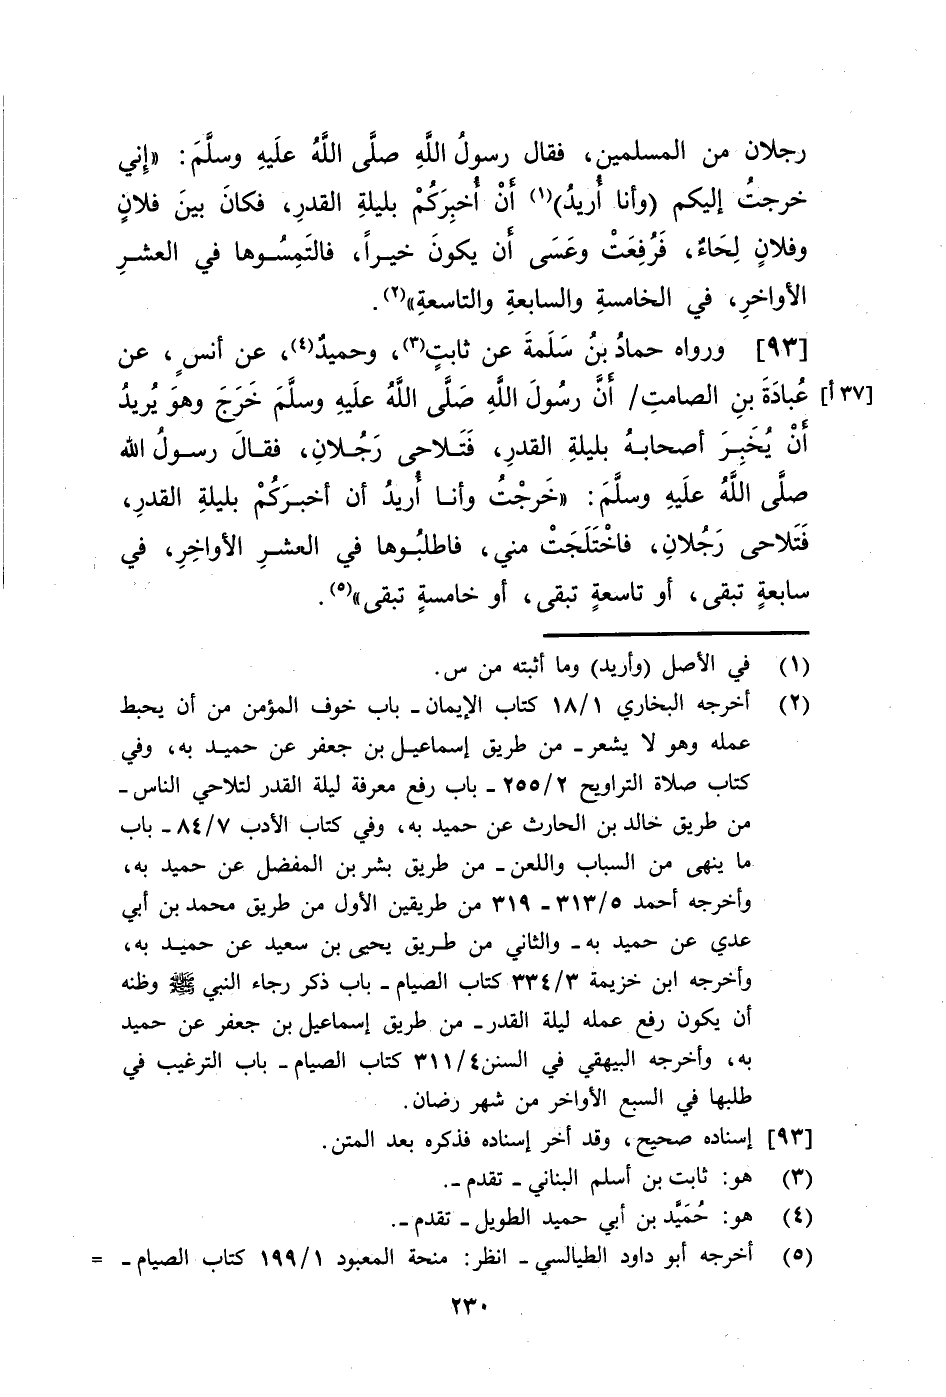 رجلان من المسلمين، فقال رسولُ اللَّهِ صلَّى اللَّهُ علَيهِ وسلَّمَ: «إِني
خرجتُ إليكم (وأنا أُريدُ)(١) أَنْ أُخبِرَكُمْ بليلةِ القدرِ، فكانَ بينَ فلانٍ
وفلانٍ لِحَاءٌ، فَرُفِعَتْ وعَسَى أَن يكونَ خيـراً، فالتَمِسُـوها في العشـرِ
الأواخرِ، في الخامسةِ والسابعةِ والتاسعةِ»(٢).
[٩٣] ورواه حمادُ بنُ سَلَمةَ عن ثابتٍ(٣)، وحميدٌ(٤)، عن أنسٍ، عن
[٣٧أ] عُبادَةَ بنِ الصامتِ/ أَنَّ رسُولَ اللَّهِ صَلَّى اللَّهُ علَيهِ وسلَّمَ خَرَجَ وهوَ يُريدُ
أَنْ يُخَبِـرَ أصحابـهُ بليلةِ القدرِ، فَتَـلاحى رَجُـلانِ، فقـالَ رسـولُ الله
صلَّى اللَّهُ علَيهِ وسلَّمَ: «خَرجْتُ وأنـا أُريدُ أن أخبـرَكُمْ بليلةِ القدرِ،
فَتَلاحى رَجُلانِ، فاخْتَلَجَتْ مني، فاطلبُوها في العشـرِ الأواخِرِ، في
سابعةٍ تبقى، أو تاسعةٍ تبقى، أو خامسةٍ تبقى»(٥).
(١) في الأصل (وأريد) وما أثبته من س.
(٢) أخرجه البخاري ١٨/١ كتاب الإيمان ـ باب خوف المؤمن من أن يحبط
عمله وهو لا يشعر ـ من طريق إسماعيـل بن جعفر عن حميـد به، وفي
كتاب صلاة التراويح ٢٥٥/٢ ـ باب رفع معرفة ليلة القدر لتلاحي الناس ـ
من طريق خالد بن الحارث عن حميد به، وفي كتاب الأدب ٨٤/٧ ـ باب
ما ينهى من السباب واللعن ـ من طريق بشر بن المفضل عن حميد به،
وأخرجه أحمد ٣١٣/٥ ـ ٣١٩ من طريقين الأول من طريق محمد بن أبي
عدي عن حميد به ـ والثاني من طـريق يحيى بن سعيد عن حميـد به،
وأخرجه ابن خزيمة ٣٣٤/٣ كتاب الصيام ـ باب ذكر رجاء النبي ﷺ وظنه
أن يكون رفع عمله ليلة القدر ـ من طريق إسماعيل بن جعفر عن حميد
به، وأخرجه البيهقي في السنن ٣١١/٤ كتاب الصيام ـ باب الترغيب في
طلبها في السبع الأواخر من شهر رضان.
[٩٣] إسناده صحيح، وقد أخر إسناده فذكره بعد المتن.
(٣) هو: ثابت بن أسلم البناني ـ تقدم ـ.
(٤) هو: حُمَيَّد بن أبي حميد الطويل ـ تقدم ـ.
(٥) أخرجه أبو داود الطيالسي ـ انظر: منحة المعبود ١٩٩/١ كتاب الصيام ـ =
٢٣٠